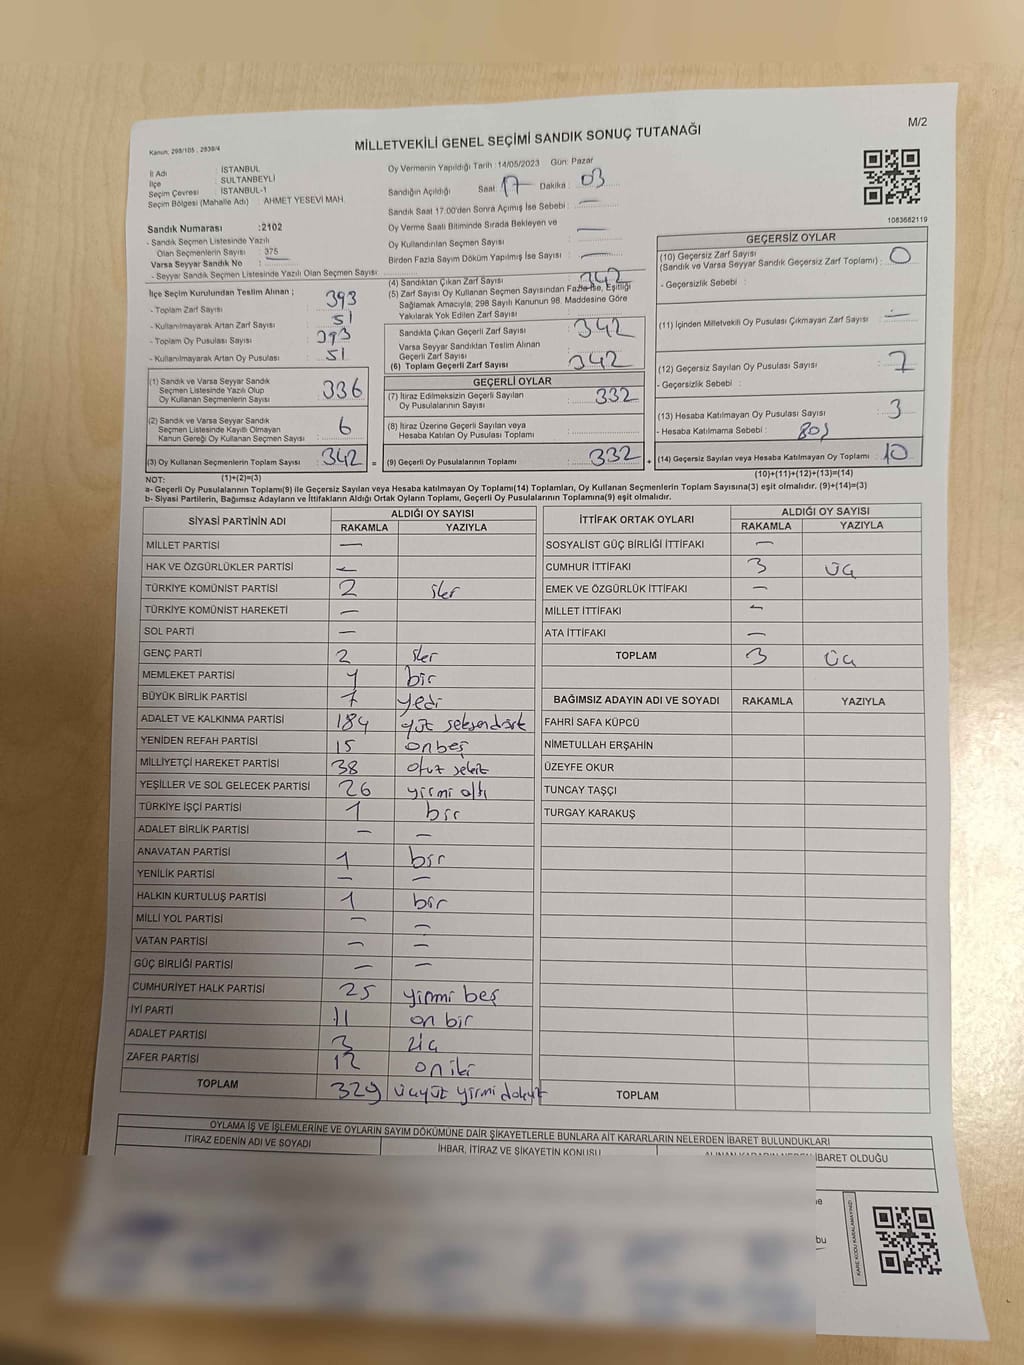 M/2
Kanun: 298/105 ; 2839/4
MİLLETVEKİLİ GENEL SEÇİMİ SANDIK SONUÇ TUTANAĞI
İl Adı : İSTANBUL
İlçe : SULTANBEYLİ
Seçim Çevresi : İSTANBUL-1
Seçim Bölgesi (Mahalle Adı) : AHMET YESEVİ MAH.
Oy Vermenin Yapıldığı Tarih :14/05/2023 Gün: Pazar
Sandığın Açıldığı Saat: 17 Dakika : 03
Sandık Saat 17:00'den Sonra Açımış İse Sebebi : —
Oy Verme Saati Bitiminde Sırada Bekleyen ve
Oy Kullandırılan Seçmen Sayısı : —
Birden Fazla Sayım Döküm Yapılmış İse Sayısı : —
1083682119
Sandık Numarası :2102
- Sandık Seçmen Listesinde Yazılı
Olan Seçmenlerin Sayısı : 375
Varsa Seyyar Sandık No : —
- Seyyar Sandık Seçmen Listesinde Yazılı Olan Seçmen Sayısı :
İlçe Seçim Kurulundan Teslim Alınan ;
- Toplam Zarf Sayısı : 393
- Kullanılmayarak Artan Zarf Sayısı : 51
- Toplam Oy Pusulası : 393
- Kullanılmayarak Artan Oy Pusulası : 51
(1) Sandık ve Varsa Seyyar Sandık
Seçmen Listesinde Yazılı Olup
Oy Kullanan Seçmenlerin Sayısı : 336
(2) Sandık ve Varsa Seyyar Sandık
Seçmen Listesinde Kayıtlı Olmayan
Kanun Gereği Oy Kullanan Seçmen Sayısı : 6
(3) Oy Kullanan Seçmenlerin Toplam Sayısı : 342 =
(4) Sandıktan Çıkan Zarf Sayısı : 342
(5) Zarf Sayısı Oy Kullanan Seçmen Sayısından Fazla İse, Eşitliği
Sağlamak Amacıyla; 298 Sayılı Kanunun 98. Maddesine Göre
Yakılarak Yok Edilen Zarf Sayısı :
Sandıkta Çıkan Geçerli Zarf Sayısı : 342
Varsa Seyyar Sandıktan Teslim Alınan
Geçerli Zarf Sayısı :
(6) Toplam Geçerli Zarf Sayısı : 342
GEÇERLİ OYLAR
(7) İtiraz Edilmeksizin Geçerli Sayılan
Oy Pusulalarının Sayısı : 332
(8) İtiraz Üzerine Geçerli Sayılan veya
Hesaba Katılan Oy Pusulası Toplamı :
(9) Geçerli Oy Pusulalarının Toplamı : 332 +
GEÇERSİZ OYLAR
(10) Geçersiz Zarf Sayısı
(Sandık ve Varsa Seyyar Sandık Geçersiz Zarf Toplamı) : 0
- Geçersizlik Sebebi :
(11) İçinden Milletvekili Oy Pusulası Çıkmayan Zarf Sayısı : —
(12) Geçersiz Sayılan Oy Pusulası Sayısı : 7
- Geçersizlik Sebebi :
(13) Hesaba Katılmayan Oy Pusulası Sayısı : 3
- Hesaba Katılmama Sebebi : boş
(14) Geçersiz Sayılan veya Hesaba Katılmayan Oy Toplamı : 10
NOT: (1)+(2)=(3) (10)+(11)+(12)+(13)=(14)
a- Geçerli Oy Pusulalarının Toplamı(9) ile Geçersiz Sayılan veya Hesaba katılmayan Oy Toplamı(14) Toplamları, Oy Kullanan Seçmenlerin Toplam Sayısına(3) eşit olmalıdır. (9)+(14)=(3)
b- Siyasi Partilerin, Bağımsız Adayların ve İttifakların Aldığı Ortak Oyların Toplamı, Geçerli Oy Pusulalarının Toplamına(9) eşit olmalıdır.
SİYASİ PARTİNİN ADI ALDIĞI OY SAYISI
RAKAMLA YAZIYLA
MİLLET PARTİSİ —
HAK VE ÖZGÜRLÜKLER PARTİSİ —
TÜRKİYE KOMÜNİST PARTİSİ 2 iki
TÜRKİYE KOMÜNİST HAREKETİ —
SOL PARTİ —
GENÇ PARTİ 2 iki
MEMLEKET PARTİSİ 1 bir
BÜYÜK BİRLİK PARTİSİ 7 yedi
ADALET VE KALKINMA PARTİSİ 184 yüz seksendört
YENİDEN REFAH PARTİSİ 15 onbeş
MİLLİYETÇİ HAREKET PARTİSİ 38 otuz sekiz
YEŞİLLER VE SOL GELECEK PARTİSİ 26 yirmi altı
TÜRKİYE İŞÇİ PARTİSİ 1 bir
ADALET BİRLİK PARTİSİ — —
ANAVATAN PARTİSİ 1 bir
YENİLİK PARTİSİ — —
HALKIN KURTULUŞ PARTİSİ 1 bir
MİLLİ YOL PARTİSİ — —
VATAN PARTİSİ — —
GÜÇ BİRLİĞİ PARTİSİ — —
CUMHURİYET HALK PARTİSİ 25 yirmi beş
İYİ PARTİ 11 on bir
ADALET PARTİSİ 3 üç
ZAFER PARTİSİ 12 on iki
TOPLAM 329 üçyüz yirmi dokuz
İTTİFAK ORTAK OYLARI ALDIĞI OY SAYISI
RAKAMLA YAZIYLA
SOSYALİST GÜÇ BİRLİĞİ İTTİFAKI —
CUMHUR İTTİFAKI 3 üç
EMEK VE ÖZGÜRLÜK İTTİFAKI —
MİLLET İTTİFAKI —
ATA İTTİFAKI —
TOPLAM 3 üç
BAĞIMSIZ ADAYIN ADI VE SOYADI RAKAMLA YAZIYLA
FAHRİ SAFA KÜPCÜ
NİMETULLAH ERŞAHİN
ÜZEYFE OKUR
TUNCAY TAŞÇI
TURGAY KARAKUŞ
TOPLAM
OYLAMA İŞ VE İŞLEMLERİNE VE OYLARIN SAYIM DÖKÜMÜNE DAİR ŞİKAYETLERLE BUNLARA AİT KARARLARIN NELERDEN İBARET BULUNDUKLARI
İTİRAZ EDENİN ADI VE SOYADI
İHBAR, İTİRAZ VE ŞİKAYETİN KONUSU
İBARET OLDUĞU
bu
KARE KODU KARALAMAYINIZ!